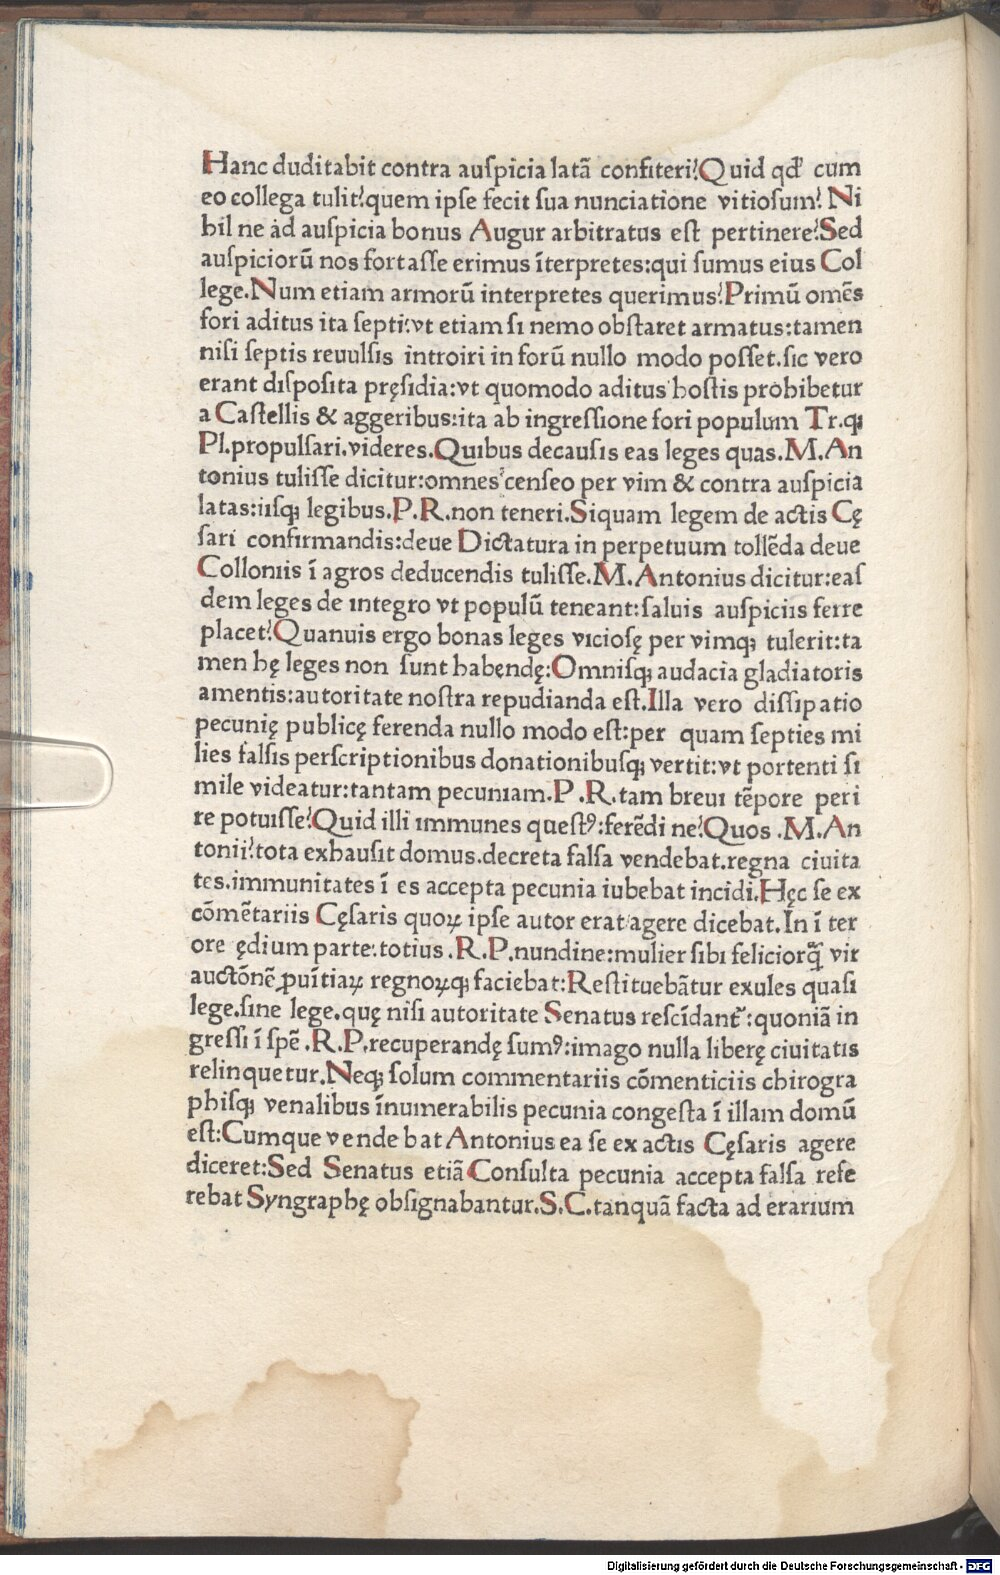 Hanc duditabit contra auſpicia latã confiteri?Quid qd̛ cum
eo collega tulit?quem ipſe fecit ſua nunciatione vitioſum? Ni
hil ne ad auſpicia bonus Augur arbitratus eſt pertinere?Sed
auſpiciorũ nos fortaſſe erimus ĩterpretes:qui ſumus eius Col
lege.Num etiam armorũ interpretes querimus?Primũ omẽs
fori aditus ita ſepti:vt etiam ſi nemo obſtaret armatus:tamen
niſi ſeptis reuulſis introiri in forũ nullo modo poſſet.ſic vero
erant diſpoſita pręſidia:vt quomodo aditus hoſtis prohibetur
a Caſtellis & aggeribus:ita ab ingreſſione fori populum Tr.qꝫ
Pl.propulſari.videres.Quibus decauſis eas leges quas.M.An
tonius tuliſſe dicitur:omnes cenſeo per vim & contra auſpicia
latas:iiſqꝫ legibus.P.R.non teneri.Siquam legem de actis Cę
ſari confirmandis:deue Dictatura in perpetuum tollẽda deue
Colloniis ĩ agros deducendis tuliſſe.M.Antonius dicitur:eaſ
dem leges de integro vt populũ teneant:ſaluis auſpiciis ferre
placet?Quanuis ergo bonas leges vicioſę per vimqꝫ tulerit:ta
men hę leges non ſunt habendę:Omniſqꝫ audacia gladiatoris
amentis:autoritate noſtra repudianda eſt.Illa vero diſſipatio
pecunię publicę ferenda nullo modo eſt:per quam ſepties mi
lies falſis perſcriptionibus donationibuſqꝫ vertit:vt portenti ſi
mile videatur:tantam pecuniam.P.R.tam breui tẽpore peri
re potuiſſe?Quid illi immunes queſtꝰ:ferẽdi ne?Quos .M.An
tonii?tota exhauſit domus.decreta falſa vendebat.regna ciuita
tes.immunitates ĩ es accepta pecunia iubebat incidi.Hęc ſe ex
cõmẽtariis Cęſaris quoꝝ ipſe autor erat agere dicebat.In ĩ ter
ore ędium parte.totius .R.P.nundine:mulier ſibi felicior q̃ vir
auctõnẽ ꝓuĩtiaꝝ regnoꝝqꝫ faciebat:Reſtituebãtur exules quaſi
lege.ſine lege.quę niſi autoritate Senatus reſcĩdant᷑:quoniã in
greſſi ĩ ſpẽ .R.P.recuperandę ſumꝰ:imago nulla liberę ciuitatis
relinquetur.Neqꝫ ſolum commentariis cõmenticiis chirogra
phiſqꝫ venalibus ĩnumerabilis pecunia congeſta ĩ illam domũ
eſt:Cumque vendebat Antonius ea ſe ex actis Cęſaris agere
diceret:Sed Senatus etiã Conſulta pecunia accepta falſa refe
rebat Syngraphę obſignabantur.S.C.tanquã facta ad erarium
Digitalisierung gefördert durch die Deutsche Forschungsgemeinschaft - DFG